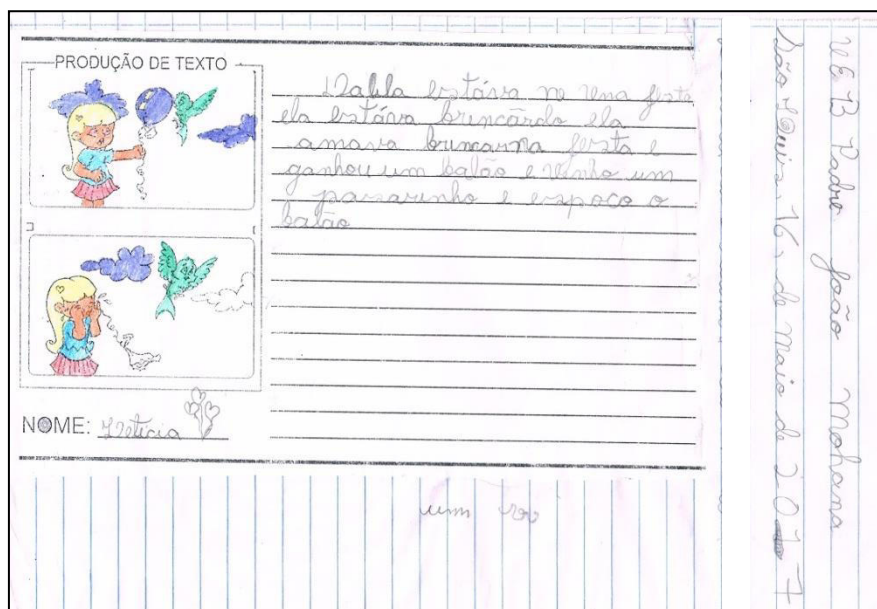 PRODUÇÃO DE TEXTO
estáva ne uma festa
ela estáva brincãndo ela
amava brincarna festa e
ganhou um balão e vinho um
pasarinho e espoco o
balão
NOME: Leticia
um
U E B Padre João Mohana
São Luis, 16, de maio de 2017